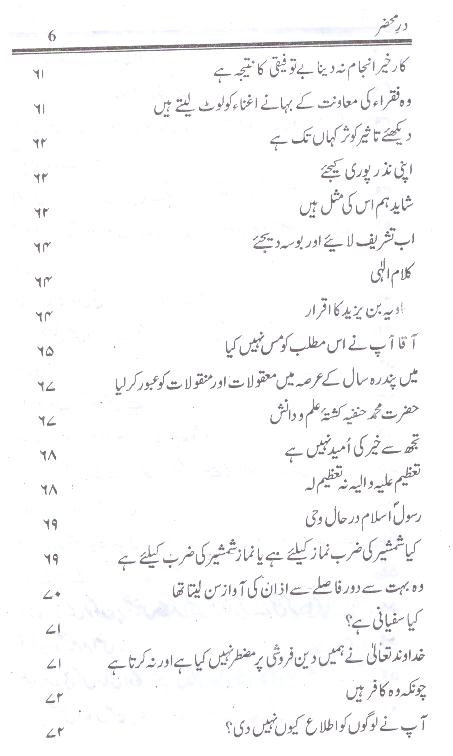 درِ محضر 6
کارِ خیر انجام نہ دینا بے توفیقی کا نتیجہ ہے ۶۱
وہ فقراء کی معاونت کے بہانے اغنیاء کو لوٹ لیتے ہیں ۶۱
دیکھئے تاثیر کوثر کہاں تک ہے ۶۲
اپنی نذر پوری کیجئے ۶۲
شاید ہم اس کی مثل ہیں ۶۲
اب تشریف لائیے اور بوسہ دیجئے ۶۴
کلام الٰہی ۶۴
اویہ بن یزید کا اقرار ۶۴
آقا آپ نے اس مطلب کو مس نہیں کیا ۶۵
میں پندرہ سال کے عرصہ میں معقولات اور منقولات کو عبور کر لیا ۶۷
حضرت محمد حنفیہ کشتۂ علم و دانش ۶۷
تجھ سے خیر کی اُمید نہیں ہے ۶۸
تعظیم علیہ و الیہ نہ تعظیم لہ ۶۸
رسولِ اسلام در حال وحی ۶۹
کیا شمشیر کی ضرب نماز کیلئے ہے یا نماز شمشیر کی ضرب کیلئے ہے ۶۹
وہ بہت سے دور فاصلے سے اذان کی آواز سن لیتا تھا ۷۰
کیا سفیانی ہے؟ ۷۱
خداوند تعالیٰ نے ہمیں دین فروشی پر مضطر نہیں کیا ہے اور نہ کرتا ہے ۷۱
چونکہ وہ کافر ہیں ۷۲
آپ نے لوگوں کو اطلاع کیوں نہیں دی؟ ۷۲